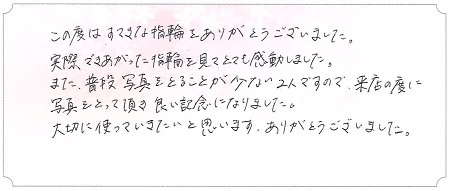 この度はすてきな指輪をありがとうございました。
実際できあがった指輪を見てとても感動しました。
また、普段写真をとることが少ない2人ですので、来店の度に
写真をとって頂き良い記念になりました。
大切に使っていきたいと思います。ありがとうございました。